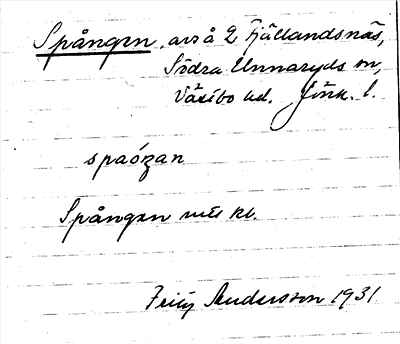 Spången, avs å 2 Hjällandsnäs,
Södra Unnaryds sn,
Västbo hd. Jönk. l.
spaóŋan
Spången
Andersson 1931